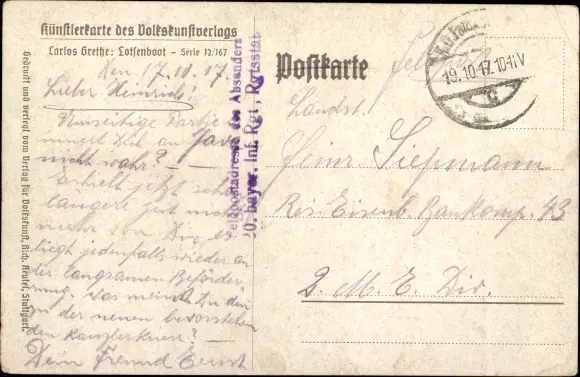 Künstlerkarte des Volkskunstverlags
Carlos Grethe: Lotsenboot – Serie 12/167
Gedruckt und verlegt vom Verlag für Volkskunst, Rich. Keutel, Stuttgart.
Den 17.10.17
Lieber Heinrich!
Umseitige Partie
innert Dich an Java
nicht wahr? –
Erhielt jetzt sehr
längere Zeit nichts
mehr von Dir, es
liegt jedenfalls wieder an
der langsamen Beförder-
ung. Was meinst Du denn
zu der neuen bevorstehen
den Kanzlerkrise? –
Dein Freund Ernst
Feldpostadresse des Absenders
20. bayer. Inf. Rgt., Rgtsstab
Postkarte
19.10.17. 10-11V
Landst.
Heinr. Siepmann
Res. Eisenb. Baukomp. 43
2. M. E. Div.